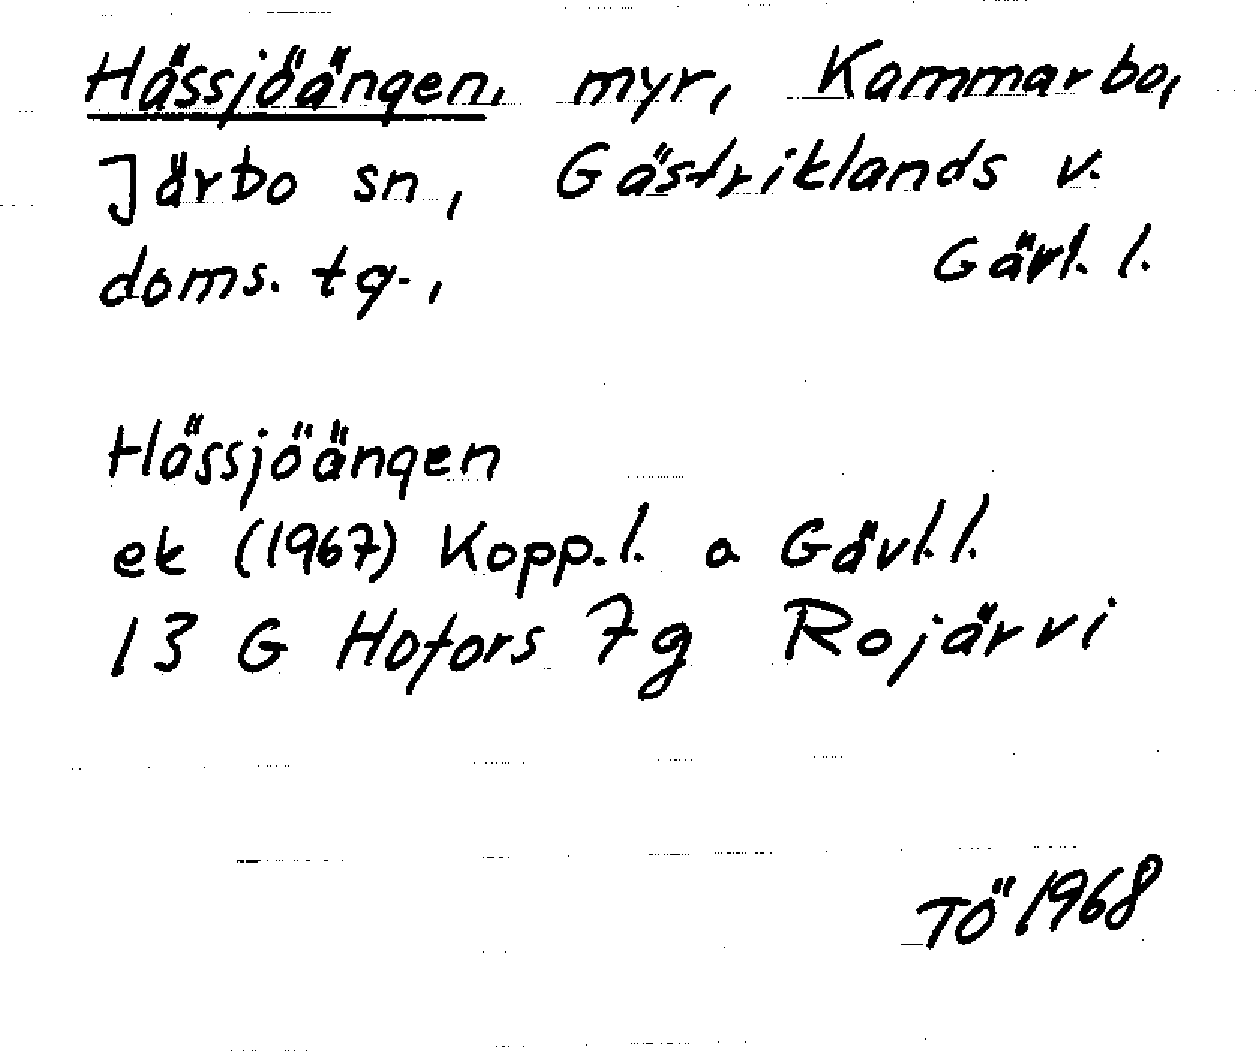 Hässjöängen, myr, Kammarbo,
Järbo sn, Gästriklands v.
doms. tg., Gävl. l.
Hässjöängen
ek (1967) Kopp. l. o Gävl. l.
13 G Hofors 7g Rojärvi
TÖ 1968